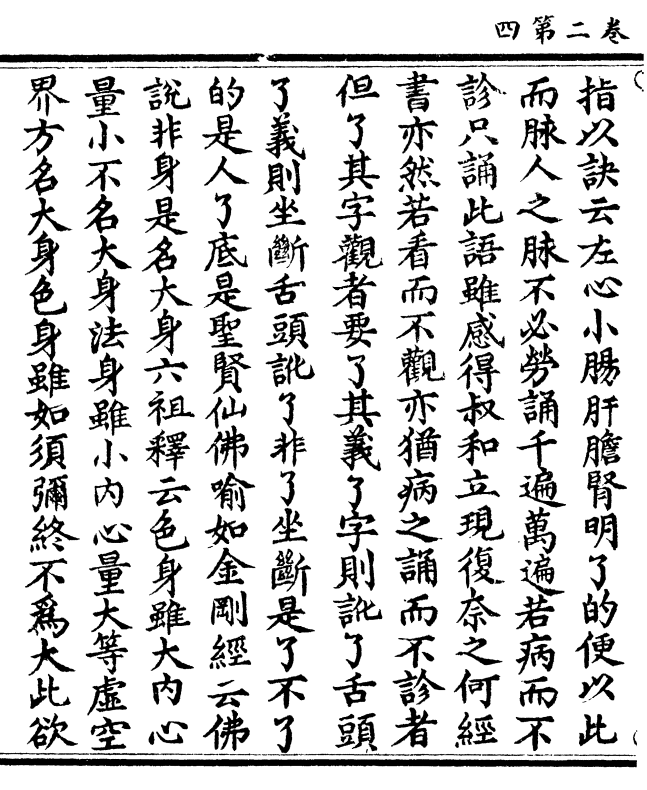 卷二第四
指以訣云左心小腸肝膽腎明了的便以此
而脉人之脉不必勞誦千遍萬遍若病而不
診只誦此語雖感得叔和立現復奈之何經
書亦然若看而不觀亦猶病之誦而不診者
但了其字觀者要了其義了字則訛了舌頭
了義則坐斷舌頭訛了非了坐斷是了不了
的是人了底是聖賢仙佛喻如金剛經云佛
說非身是名大身六祖釋云色身雖大內心
量小不名大身法身雖小內心量大等虛空
界方名大身色身雖如須彌終不爲大此欲